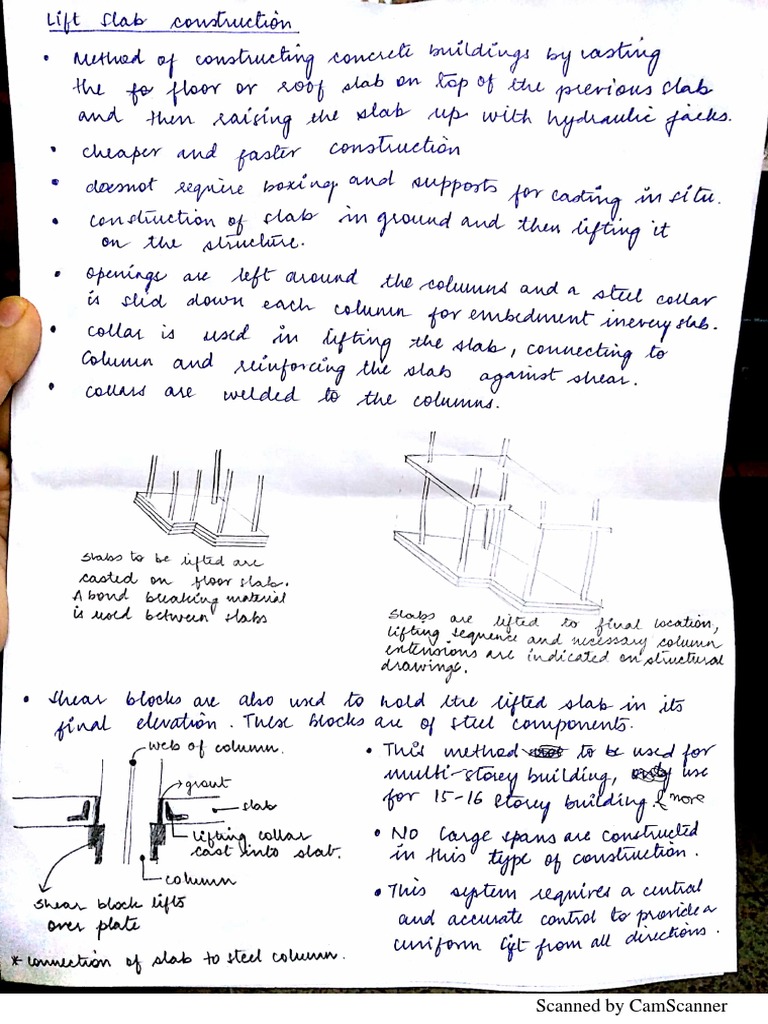 Lift Slab construction
• Method of constructing concrete buildings by casting
the floor or roof slab on top of the previous slab
and then raising the slab up with hydraulic jacks.
• cheaper and faster construction
• doesnot require boxing and supports for casting in situ.
• construction of slab in ground and then lifting it
on the structure.
• openings are left around the columns and a steel collar
is slid down each column for embedment in every slab.
• collar is used in lifting the slab, connecting to
column and reinforcing the slab against shear.
• collars are welded to the columns.
Slabs to be lifted are
casted on floor slab.
A bond breaking material
is used between slabs
Slabs are lifted to final location,
lifting sequence and necessary column
extensions are indicated on structural
drawings.
• Shear blocks are also used to hold the lifted slab in its
final elevation. These blocks are of steel components.
web of column.
grout
slab
lifting collar
cast into slab.
column
shear block lifts
over plate
* connection of slab to steel column.
• This method to be used for
multi-storey building, use
for 15-16 storey building & more
• No large spans are constructed
in this type of construction.
• This system requires a central
and accurate control to provide a
uniform lift from all directions.
Scanned by CamScanner